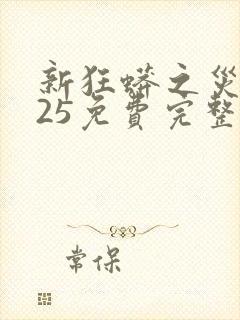 新狂蟒之災
25免費完整
常保